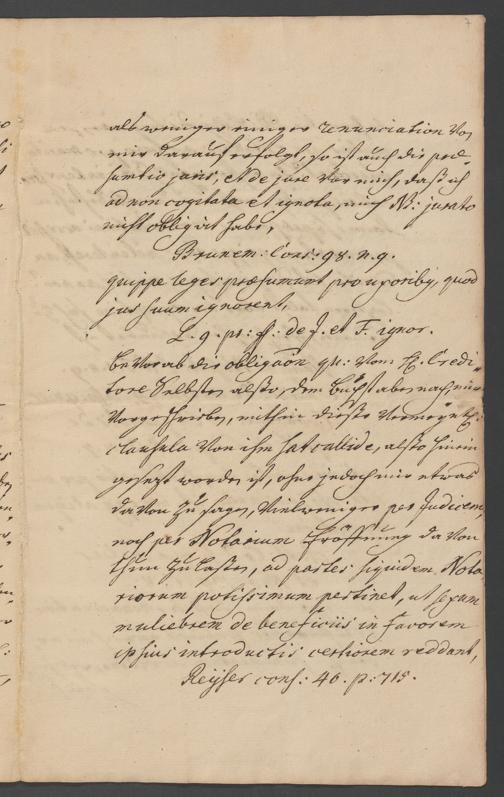 7
alß weniger einiger renunciation von
mir darauf erfolgt, so ist auch die præ-
sumtio juris, et de jure vor mich, daß ich
ad non cogitata et ignota, mich NB: jurato
nicht obligirt habe,
Brunem: Cons: 98. n. 9.
quippe leges præsumunt pro uxoribg, quod
jus suum ignorent,
L. 9. pr: ff: de J. et F. ignor.
bevorab die obligaõn qu: vom H. Credi-
tore Selbsten also, dem Buchstaben nach mir
vorgeschrieben, mithin dieße
clausula von ihm sat callide, alßo hinein
gesezt worden ist, ohne jedoch mir etwas
davon zu sagen, vielweniger per Judicem,
noch per Notarium Eröffnung davon
thun zu laßen, ad partes siquidem Nota-
riorum potissimum pertinet, ut sexum
muliebrem de beneficiis in favorem
ipsius introductis certiorem reddant,
Reyser cons: 46. p: 715.